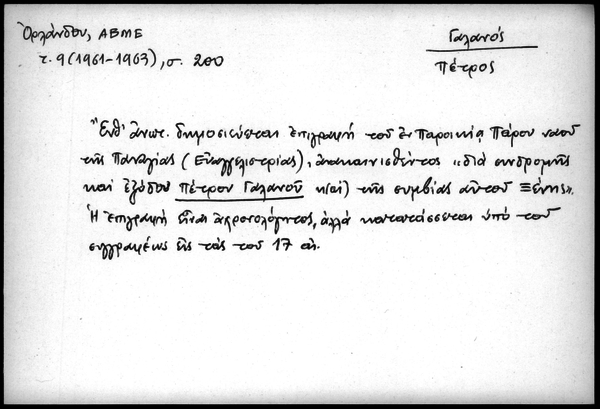 Ὀρλάνδου, ΑΒΜΕ
τ. 9 (1961-1963), σ. 200
Γαλανός
Πέτρος
Ἔνθ' ἀνωτ. δημοσιεύεται ἐπιγραφή τοῦ ἐν Παροικίᾳ Πάρου ναοῦ
τῆς Παναγίας (Εὐαγγελιστρίας), ἀνακαινισθέντος «διά συνδρομῆς
καί ἐξόδου Πέτρου Γαλανοῦ κ(αί) τῆς συμβίας αὐτοῦ Ξένης».
Ἡ ἐπιγραφή εἶναι ἀχρονολόγητος, ἀλλά κατατάσσεται ὑπό τοῦ
συγγραφέως εἰς τάς τοῦ 17 αἰ.